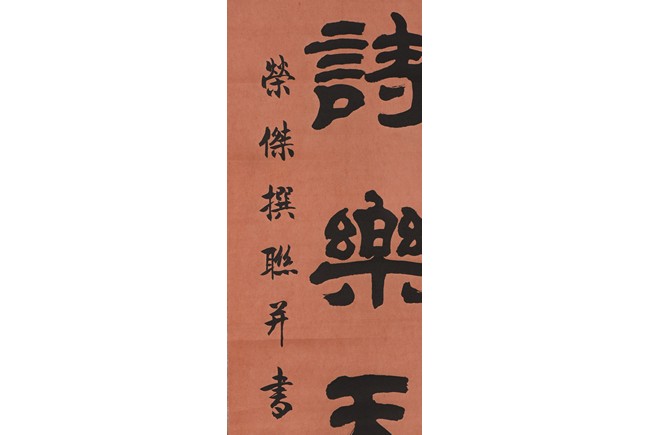 詩樂天
榮傑撰聯并書